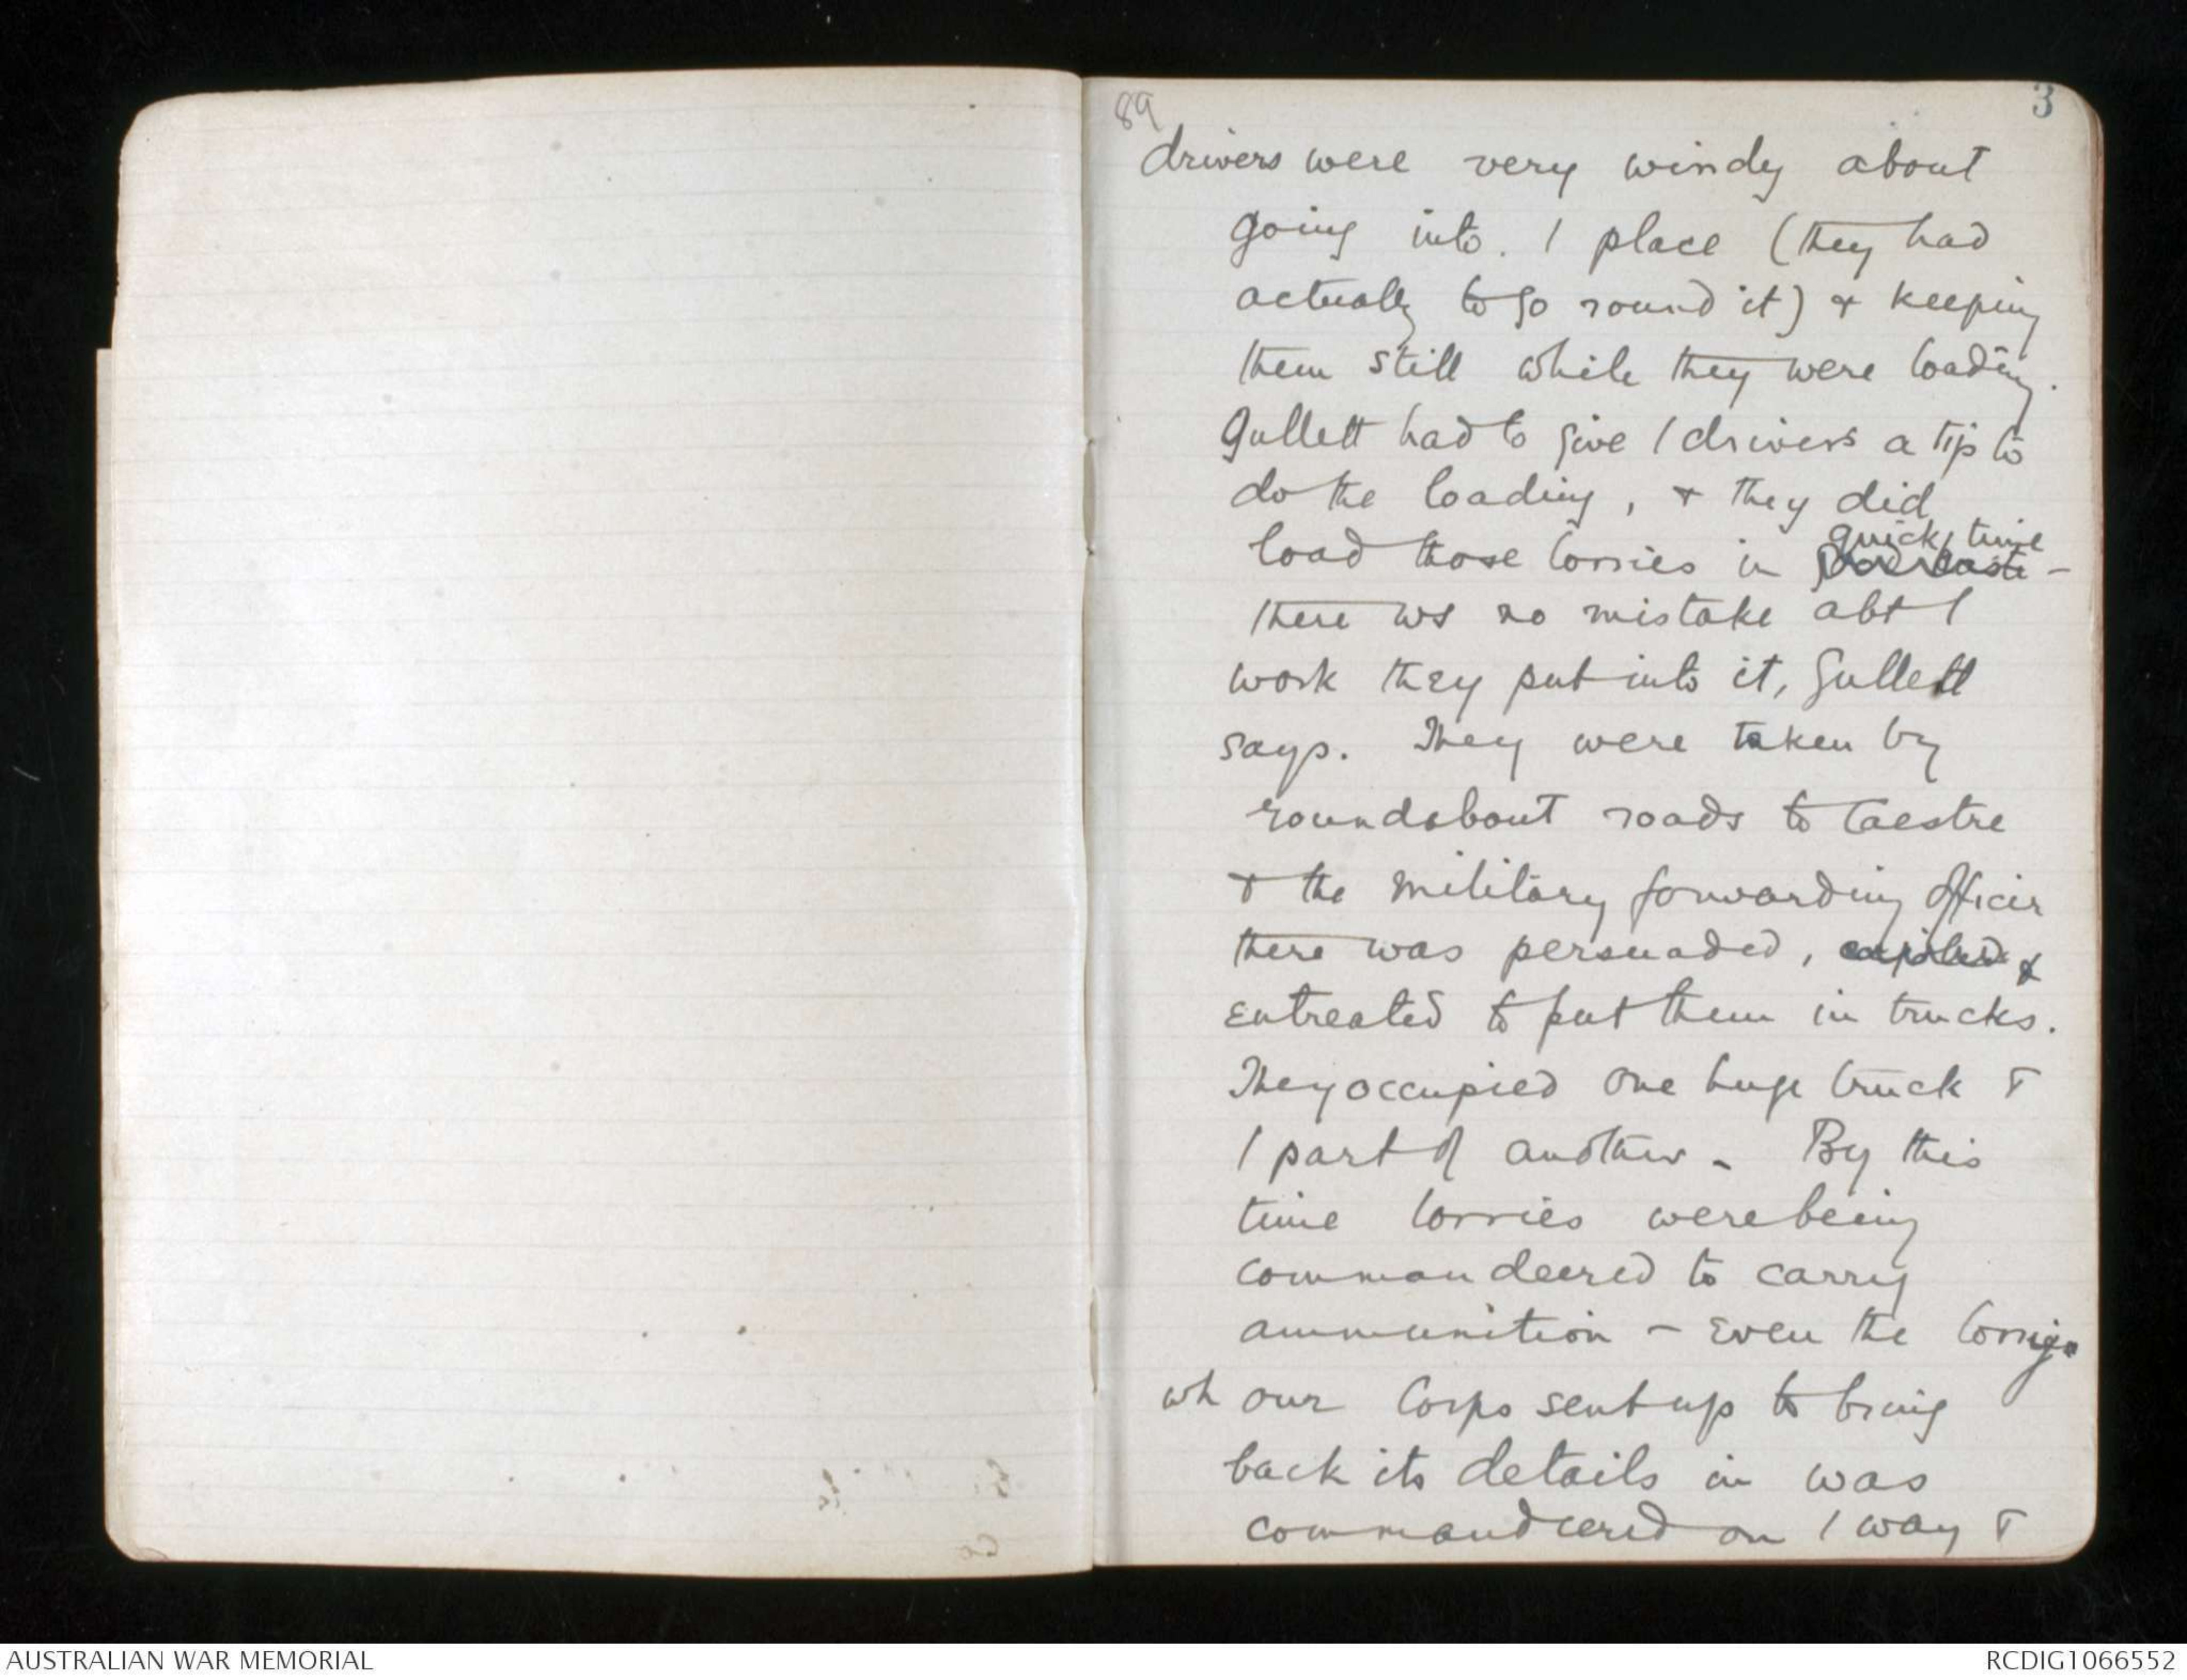 89
3
drivers were very windy about
going into. / place (they had
actually to go round it) & keeping
them still while they were loading.
Gullett had to give / drivers a tip to
do the loading, & they did
quick time
load those lorries in -
there ws no mistake abt /
work they put into it, Gullett
says. They were taken by
roundabout roads to Caestre
& the military forwarding officer
there was persuaded, cajoled &
entreated to put them in trucks.
They occupied one huge truck &
/ part of another. By this
time lorries were being
commandeered to carry
ammunition - even the
wh our Corps sent up to bring
back its details in was
commandeered on / way &
AUSTRALIAN WAR MEMORIAL
RCDIG1066552